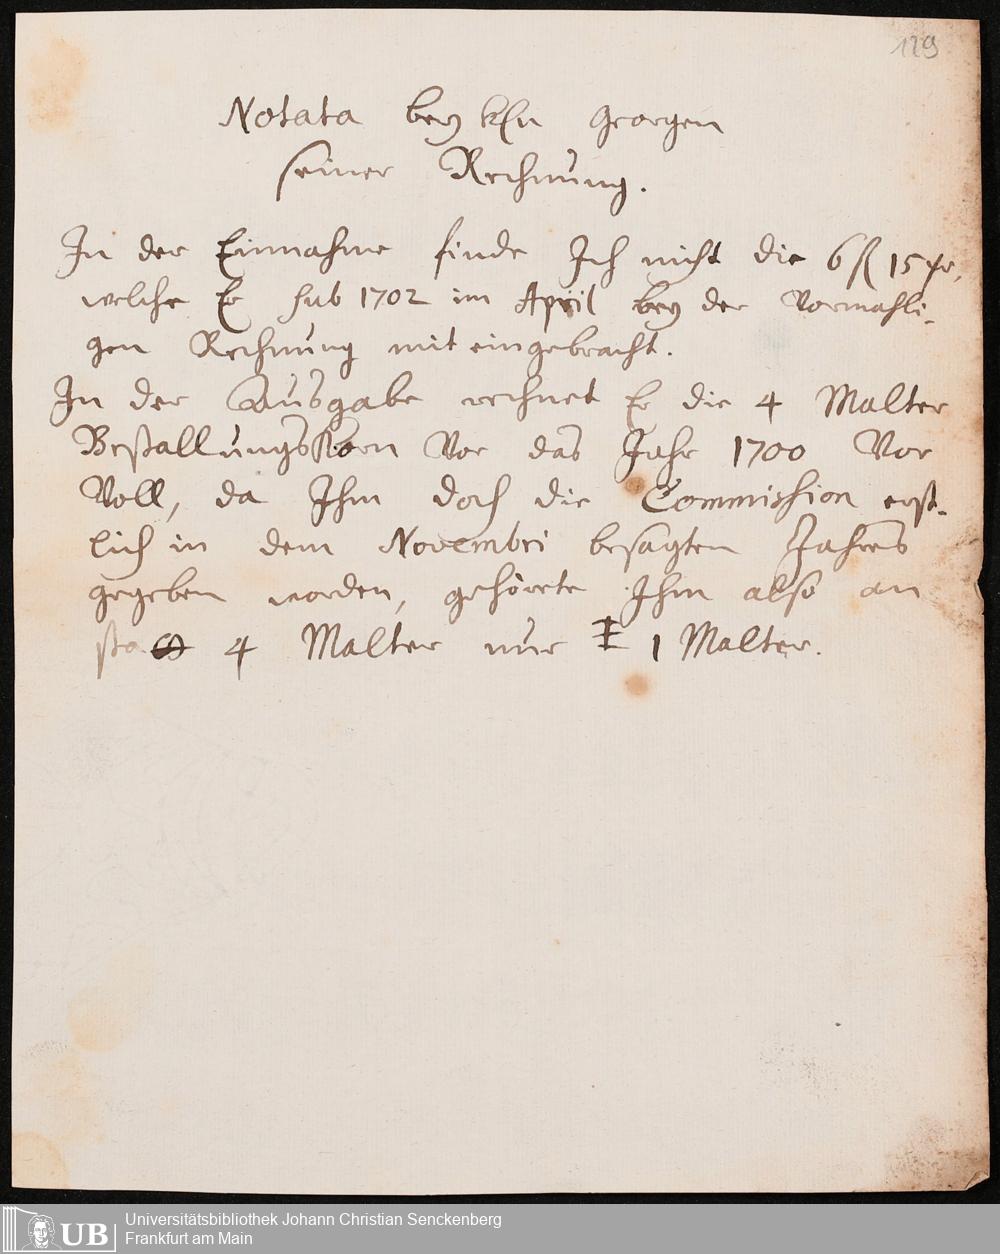 129
Notata bey Georgen
seiner Rechnung.
In der Einnahme finde Ich nicht die 6 fl 15 xr,
welche Er sub 1702 im April bey der Vormahli-
gen Rechnung mit eingebracht.
In der Ausgabe rechnet Er die 4 Malter
Bestallungskorn Vor das Jahr 1700 Vor
Voll, da Ihm doch die Commission erst-
lich in dem Novembri besagten Jahres
gegeben worden, gehörete Ihm also an
4 Malter nur 1 Malter.
UB
Universitätsbibliothek Johann Christian Senckenberg
Frankfurt am Main